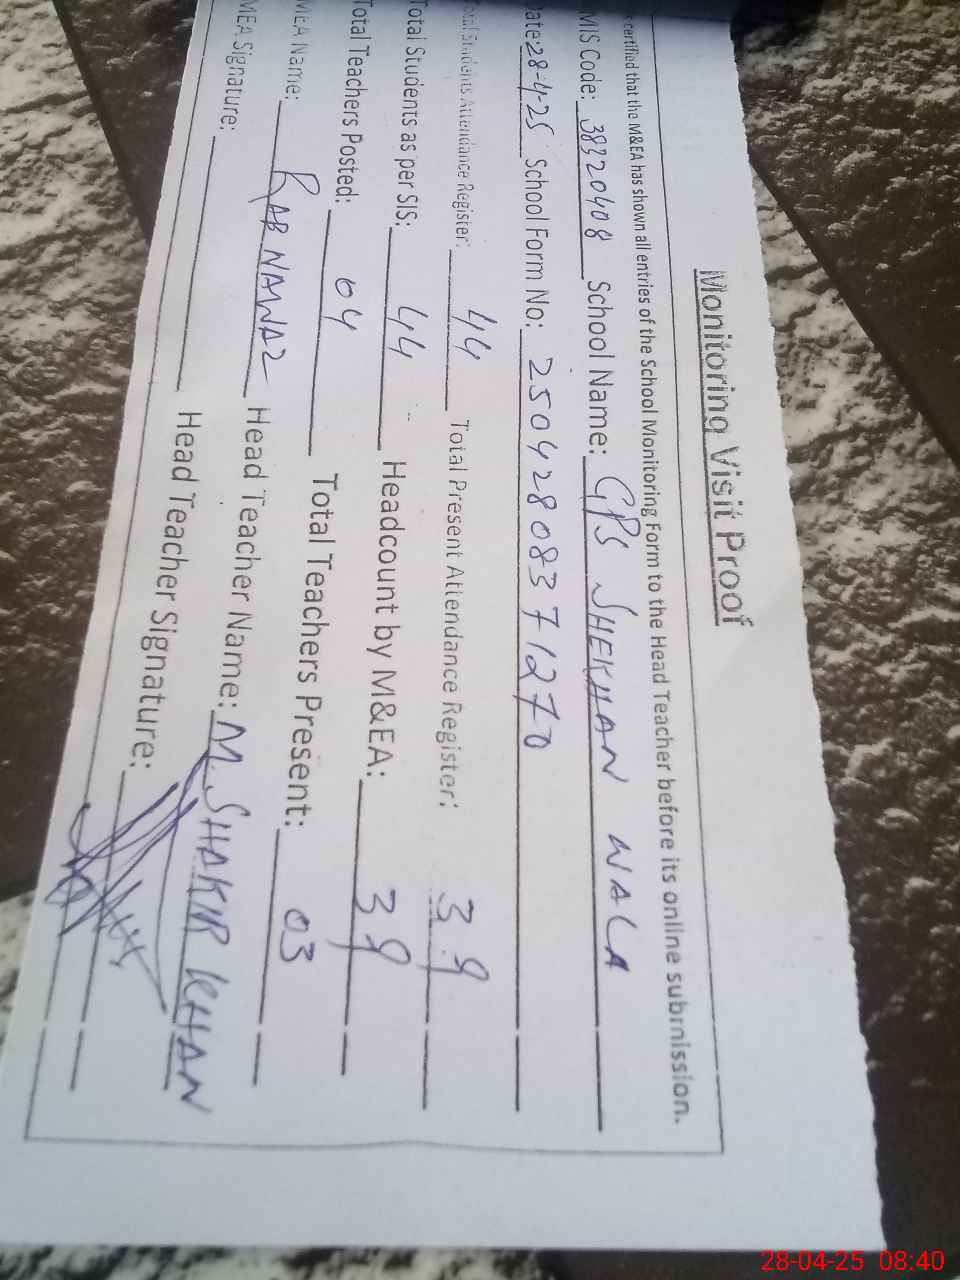 Monitoring Visit Proof
certified that the M&EA has shown all entries of the School Monitoring Form to the Head Teacher before its online submission.
MIS Code: 38320408 School Name: GPS SHEKHAN WALA
Date: 28-4-25 School Form No: 25042808371270
Total Students Attendance Register: 44 Total Present Attendance Register: 39
Total Students as per SIS: 44 Headcount by M&EA: 39
Total Teachers Posted: 04 Total Teachers Present: 03
MEA Name: RAB NAWAZ Head Teacher Name: M. SHAKIR KHAN
MEA Signature: Head Teacher Signature:
28-04-25 08:40